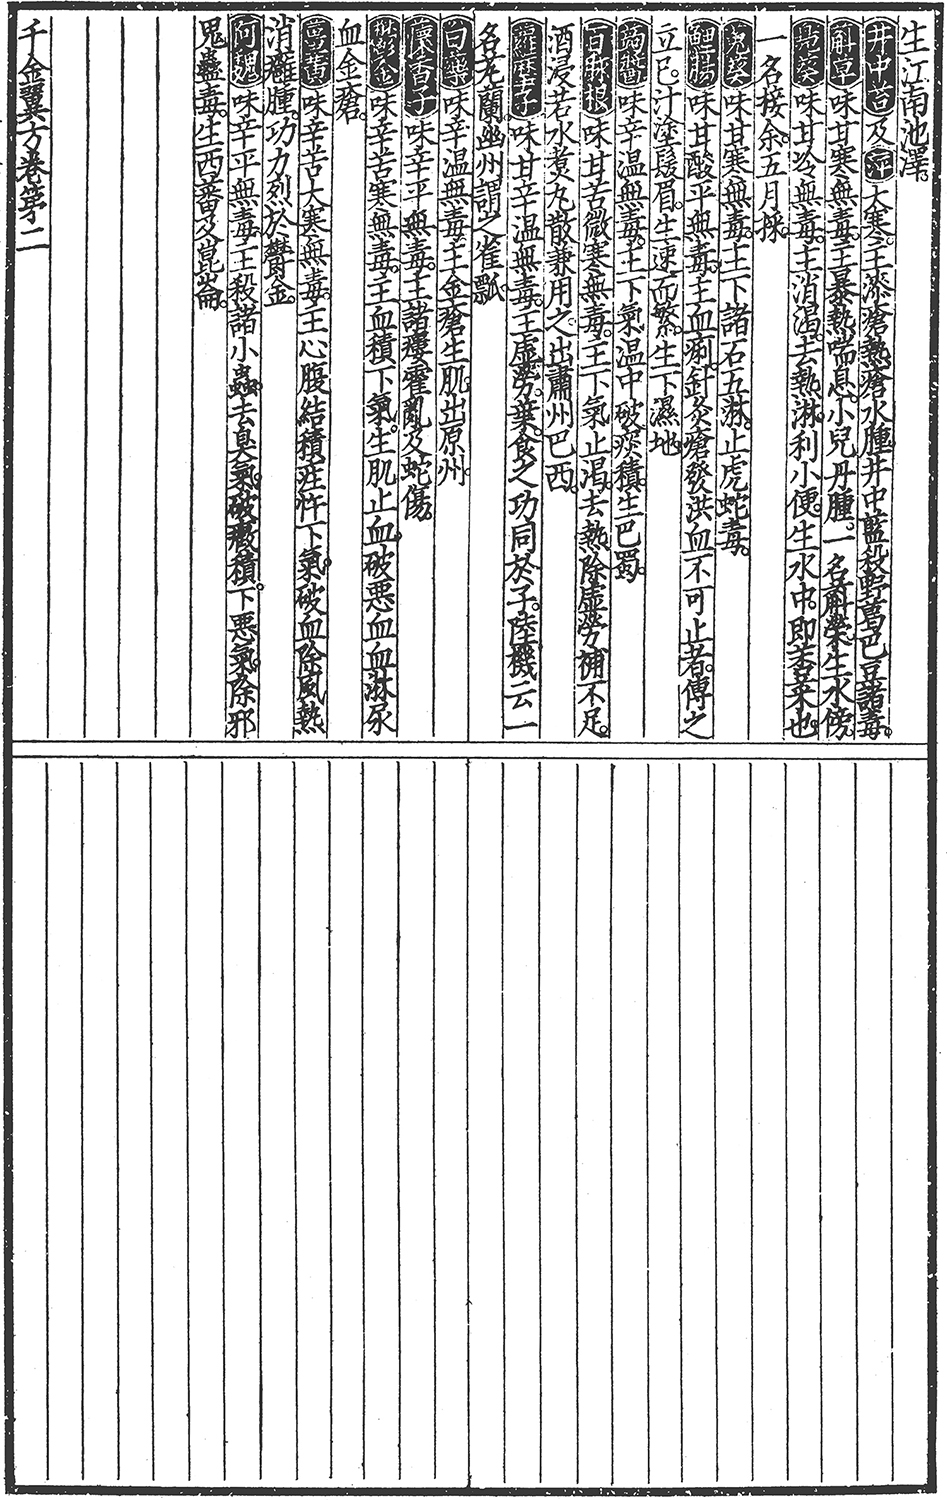 生江南池澤。
井中苔及萍大寒。主漆瘡熱瘡水腫。井中藍殺野葛巴豆諸毒。
蔛草味甘寒無毒。主暴熱喘息小兒丹腫。一名蔛榮。生水傍。
鳧葵味甘冷無毒。主消渴。去熱淋。利小便。生水中。即荇菜也。
一名接余。五月採。
兔葵味甘寒無毒。主下諸石五淋。止虎蛇毒。
鱧腸味甘酸平無毒。主血痢。針灸瘡發洪血不可止者。傅之
立已。汁塗髮眉。生速而繁。生下濕地。
蒟醬味辛温無毒。主下氣温中破痰積。生巴蜀。
百脉根味甘苦微寒無毒。主下氣止渴。去熱除虛勞補不足。
酒浸若水煮丸散兼用之。出肅州巴西。
蘿摩子味甘辛温無毒。主虛勞。葉食之功同於子。陸機云一
名芄蘭。幽州謂之雀瓢。
白藥味辛温無毒。主金瘡生肌。出原州。
懷香子味辛平無毒。主諸瘻霍亂及蛇傷。
鬱金味辛苦寒無毒。主血積下氣。生肌止血。破惡血血淋尿
血金瘡。
薑黃味辛苦大寒無毒。主心腹結積疰忤下氣。破血除風熱
消癰腫。功力烈於鬱金。
阿魏味辛平無毒。主殺諸小蟲。去臭氣。破癥積。下惡氣。除邪
鬼蠱毒。生西蕃及崑崙。
千金翼方卷第二